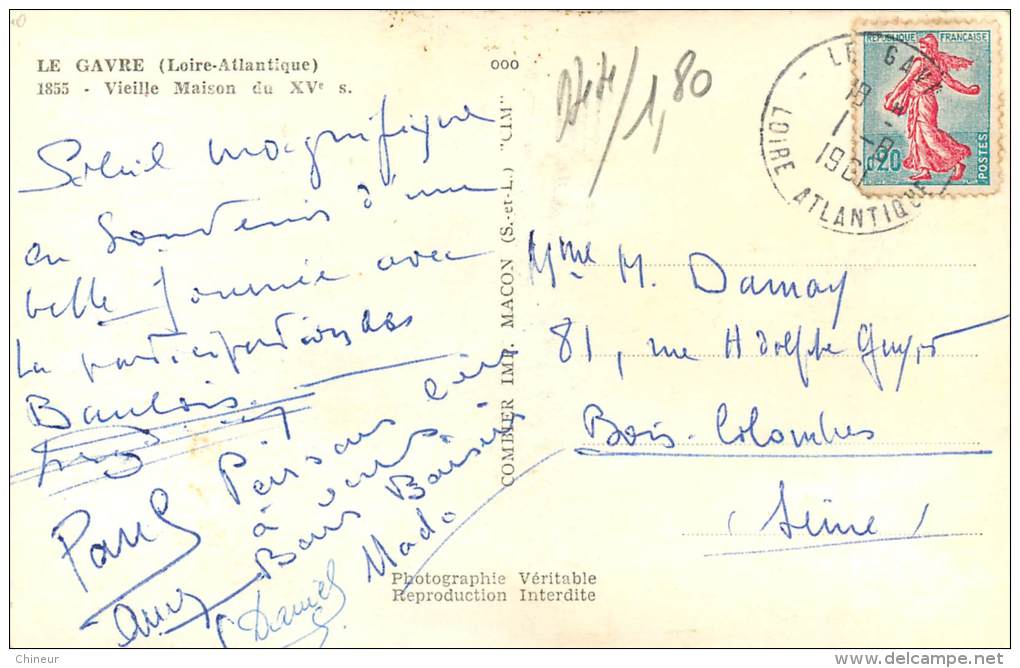 LE GAVRE (Loire-Atlantique)
1855 - Vieille Maison du XVe s.
000
1,80
REPUBLIQUE FRANÇAISE
0,20
POSTES
LE GAVRE
18 H
1 -8
1961
LOIRE ATLANTIQUE
Soleil magnifique
en souvenir d'une
belle journée avec
la participation des
Baulois.
Pensons bien
à vous
Bons Baisers
Paul
Mado
Daniel
COMBIER IMP. MACON (S.-et-L.) "CIM"
Mme M. Damay
81, rue Adolphe Guyot
Bois-Colombes
(Seine)
Photographie Véritable
Reproduction Interdite
Chineur
www.delcampe.net